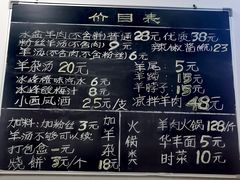 价目表
水盆羊肉(不含粉)普通28元 优质38元
粉丝羊汤(不含肉)9元 辣椒酱
羊汤(不含肉不含粉丝)6元
羊杂汤20元 羊尾:5元
冰峰橙味汽水6元 羊蹄:15元
冰峰酸梅汁8元 羊脖子:15元
小西凤酒25元/支 凉拌羊肉48元
加料:加粉丝3元
羊汤不够可以续
打包盒一元
烧饼3元/个18元
火锅类
羊肉火锅128/斤
华丰面5元
时菜10元